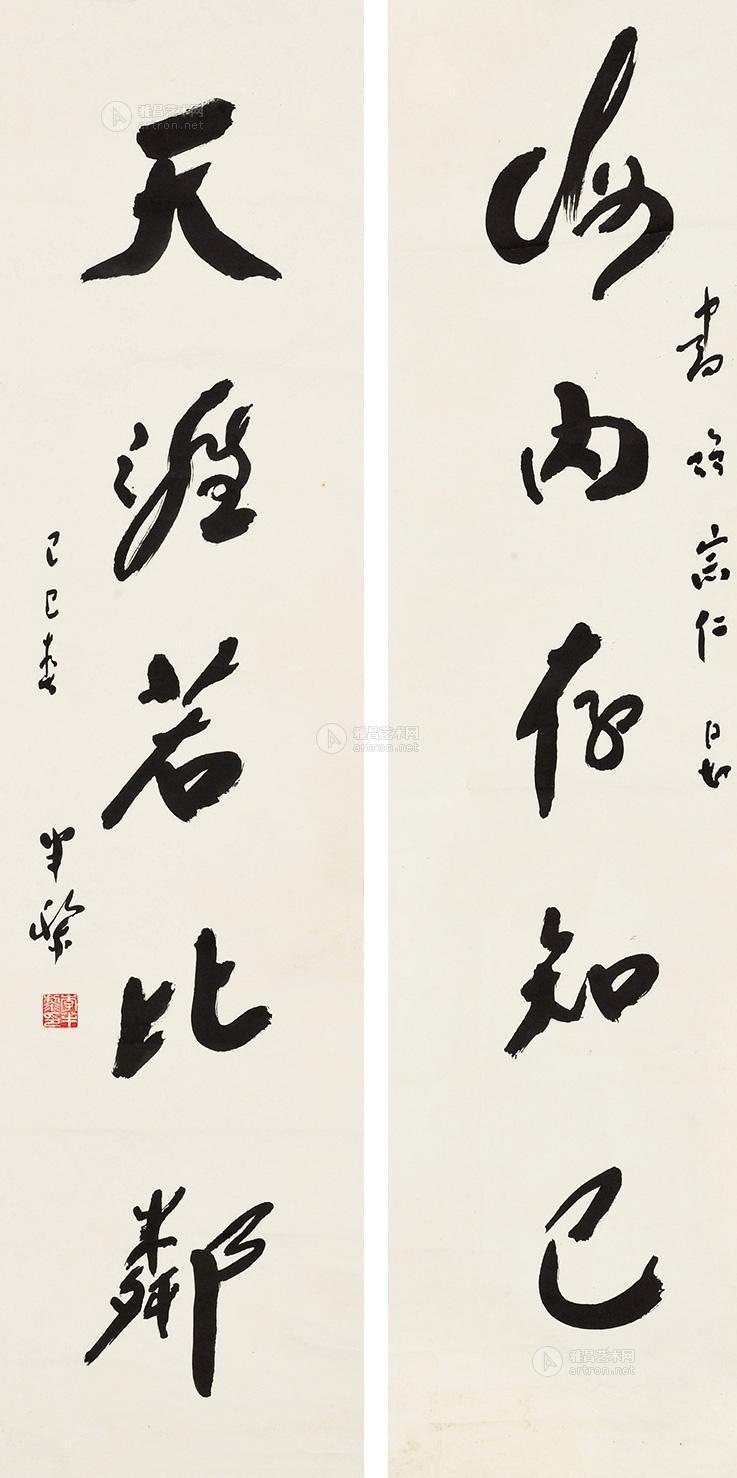 海内存知己
書贻宗仁同好
天涯若比鄰
己巳春
半黎
李半黎印
雅昌艺术网
artron.net
雅昌艺术网
artron.net
雅昌艺术网
artron.net